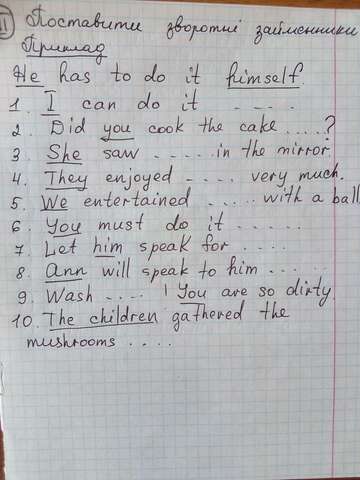 II Поставити зворотні займенники
Приклад
He has to do it himself.
1. I can do it ....
2. Did you cook the cake ....?
3. She saw ..... in the mirror.
4. They enjoyed .... very much.
5. We entertained ..... with a ball
6. You must do it .....
7. Let him speak for ....
8. Ann will speak to him .....
9. Wash ....! You are so dirty.
10. The children gathered the
mushrooms ....